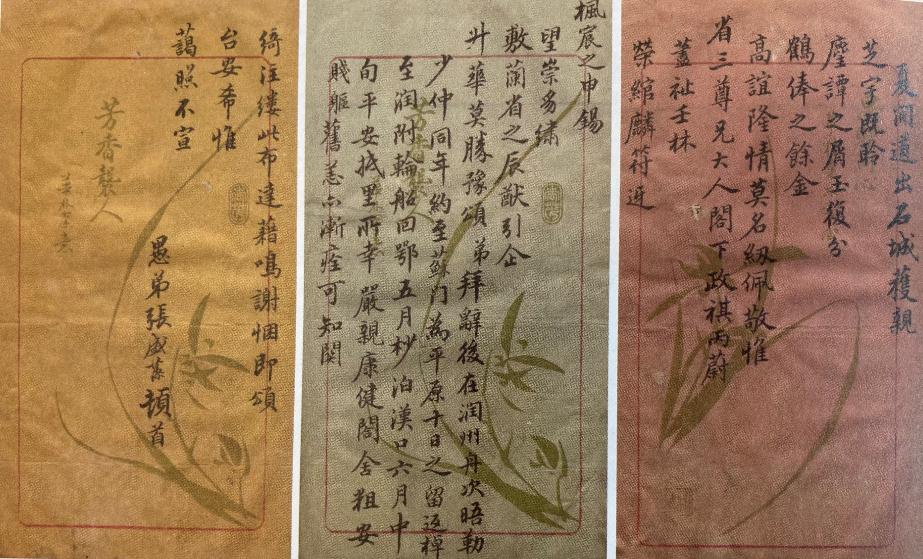 夏间道出石城获亲
芝宇既聆
麈譚之屑玉復分
鶴俸之餘金
高誼隆情莫名紉佩敬惟
省三尊兄大人閣下政祺丙蔚
蓋祉壬林
榮綰麟符迓
楓宸之申錫
望崇多繡
敷蘭省之辰猷引企
升華莫勝豫頌弟拜辭後在潤州舟次晤勒
少仲同年約至蘇門為平原十日之留返棹
至潤附輪船回鄂五月杪泊漢口六月中
旬平安抵里所幸嚴親康健閤舍粗安
賤軀舊恙亦漸痊可知関
綺注縷此布達藉鳴謝悃即頌
台安希惟
藹照不宣
愚弟張盛藻頓首
芳香襲人